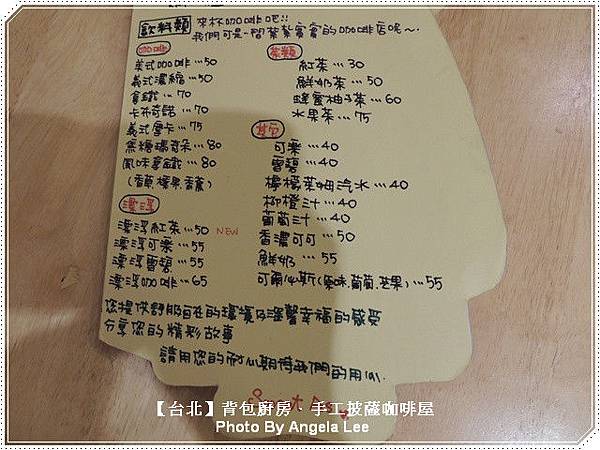 飲料類 來杯咖啡吧!!
我們可是一間紮紮實實的咖啡店呢~
咖啡
美式咖啡…50
義式濃縮…50
拿鐵…70
卡布奇諾…70
義式摩卡…75
焦糖瑪奇朵…80
風味拿鐵…80
(香草.榛果.香蕉)
漂浮
漂浮紅茶…50 NEW
漂浮可樂…55
漂浮雪碧…55
漂浮咖啡…65
茶類
紅茶…30
鮮奶茶…50
蜂蜜柚子茶…60
水果茶…75
其它
可樂…40
雪碧…40
檸檬萊姆汽水…40
柳橙汁…40
葡萄汁…40
香濃可可…50
鮮奶…55
可爾必斯(原味.葡萄.芒果)…55
您提供舒服自在的環境及溫馨幸福的感受
分享您的精彩故事
請用您的耐心期待我們的用心!
【台北】背包廚房‧手工披薩咖啡屋
Photo By Angela Lee